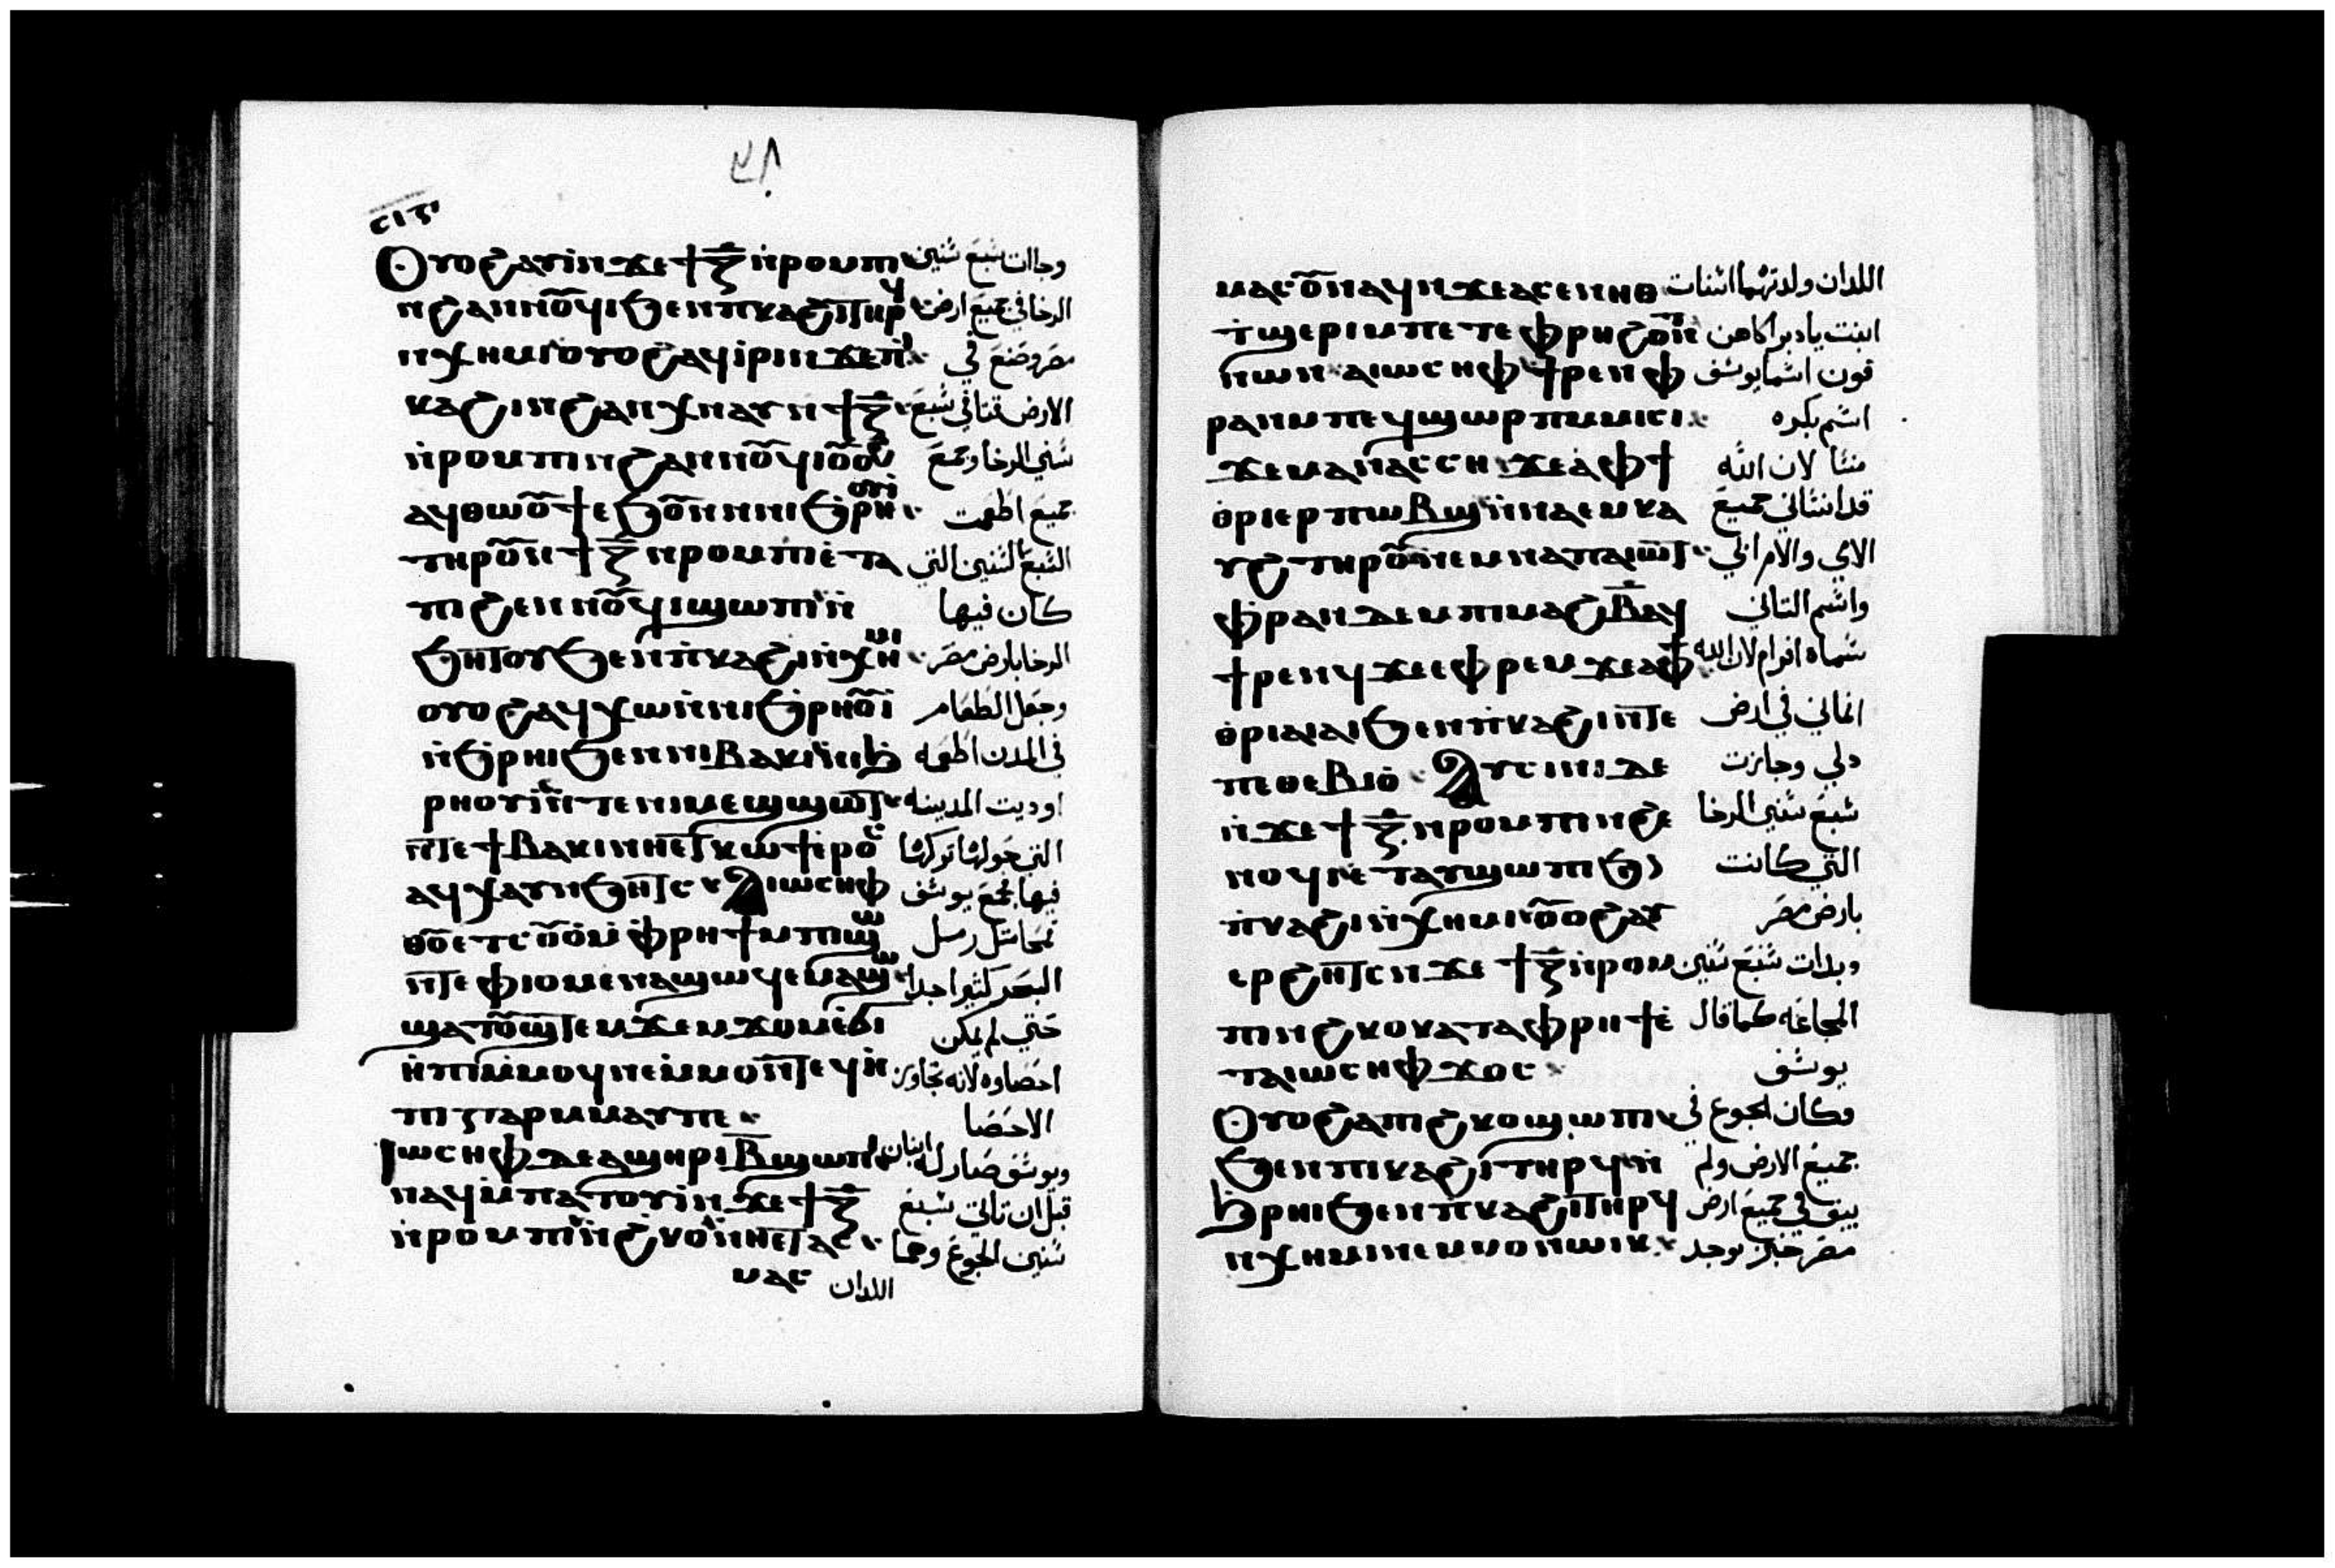 ⲥⲓⲋ
Ⲟⲩⲟϩ ⲁⲩⲓ̀ ⲛ̀ϫⲉ ϯⲍ̄ ⲛ̀ⲣⲟⲙⲡⲓ وجاات سبع سنين
ⲛϩⲁⲛⲛⲟⲩϥⲓ ϧⲉⲛ ⲡⲕⲁϩⲓ ⲧⲏⲣϥ الرخا في جميع ارض
ⲛⲭⲏⲙⲓ ⲟⲩⲟϩ ⲁϥⲓ̀ⲣⲓ ⲛϫⲉ ⲡⲓ مصر وصنع في
ⲕⲁϩⲓ ⲛϩⲁⲛⲭⲛⲁⲩ ⲛϯⲍ̄ الارض قتا في سبع
ⲛ̀ⲣⲟⲙⲡⲓ ⲛϩⲁⲛⲛⲟⲩϥⲓ ⲟⲩⲟϩ سني الرخا وجمع
ⲁϥⲑⲱⲟⲩϯ ⲉϧⲟⲩⲛ ⲛⲛⲓϧⲣⲏⲟⲩⲓ جميع اطعمت
ⲧⲏⲣⲟⲩ ⲛϯⲍ̄ ⲛⲣⲟⲙⲡⲓ ⲉ̀ⲧⲁ السبع السنين التي
ⲡⲓϩⲉⲛⲛⲟⲩϥⲓ ϣⲱⲡⲓ ⲛ̀ كان فيها
ϧⲏⲧⲟⲩ ϧⲉⲛ ⲡ̀ⲕⲁϩⲓ ⲛ̀ⲭⲏⲙⲓ الرخا بارض مصر
ⲟⲩⲟϩ ⲁϥⲭⲱ ⲛ̀ⲛⲓϧⲣⲏⲟⲩⲓ وجعل الطعام
ⲛ̀ϧⲣⲏⲓ ϧⲉⲛ ⲛⲓⲃⲁⲕⲓ ⲛⲓϧ في المدن اطعمه
ⲣⲏⲟⲩⲓ̀ ⲛ̀ⲧⲉ ⲛⲓⲙⲉϣϣⲱⲧ اوديت المدينه
ⲛ̀ⲧⲉ ϯⲃⲁⲕⲓ ⲛⲏⲉⲧⲕⲱϯ ⲉⲣⲟⲥ التي حولها تركها
ⲁϥⲭⲁⲩ ⲛϧⲏⲧⲥ Ⲁⲓⲱⲥⲏⲫ فيها فجمع يوسف
ⲑⲟⲩⲉⲧ ⲥⲟⲩⲟ̀ ⲙ̀ⲫⲣⲏϯ ⲙⲡⲓϣⲱ قمحا مثل رمل
ⲛ̀ⲧⲉ ⲫⲓⲟⲙ ⲉⲛⲁϣⲱϥ ⲉⲙⲁϣⲱ البحر كثيرا جدا
ϣⲁⲧⲟⲩϣⲧⲉⲙϫⲉⲙϫⲟⲙ ⲉ̀ϭⲓ حتي لم يمكن
ⲏ̀ⲡⲓ ⲙ̀ⲙⲟϥ ⲛⲉ ⲙ̀ⲙⲟⲛⲧⲉϥ ⲏ̀ احصاوه لانه تجاوز
ⲡⲓ ⲅⲁⲣ ⲙⲙⲁⲩ ⲡⲉ الاحصا
Ⲓⲱⲥⲏⲫ ⲇⲉ ⲁϣⲏⲣⲓ ⲃ̄ ϣⲱⲡⲓ ويوسف صار له ابنان
ⲛⲁϥ ⲙ̀ⲡⲁⲧⲟⲩⲓ̀ ⲛϫⲉ ϯⲍ̄ قبل ان تاتي سبع
ⲛ̀ⲣⲟⲙⲡⲓ ⲛ̀ϩⲕⲟ ⲛ̀ⲛⲏⲉⲧⲁⲥ سنين الجوع وهما
ⲙⲁⲥ اللدان
ⲙⲁⲥⲟⲩ ⲛⲁϥ ⲛϫⲉ ⲁⲥⲉⲛⲛⲉⲑ اللدان ولدتهما اسنات
ⲧ̀ϣⲉⲣⲓ ⲙⲡⲉⲧⲉⲫⲣⲏ ϩⲟⲛⲧ ابنت يادبرا كاهن
ⲛⲱⲛ ⲁⲓⲱⲥⲏⲫ ϯⲣⲉⲛ ⲫ قون اسما يوسف
ⲣⲁⲛ ⲙⲡⲉϥϣⲱⲣⲡ ⲙⲙⲓⲥⲓ اسم بكره
ϫⲉ ⲙⲁⲛⲁⲥⲥⲏ ϫⲉ ⲁ̀ⲫϯ منسا لان الله
ⲑⲣⲓⲉⲣⲡⲱⲃϣ ⲛ̀ⲛⲁⲉⲙⲕⲁ قد انساني جميع
ⲩϩ ⲧⲏⲣⲟⲩ ⲛⲉⲙ ⲛⲁⲡⲁⲓⲱⲧ الامي والام ابي
ⲫ̀ⲣⲁⲛ ⲇⲉ ⲙⲡⲓⲙⲁϩⲃ̄ ⲁϥ واسم التاني
ϯⲣⲉⲛϥ ϫⲉ ⲉⲫⲣⲉⲙ ϫⲉ ⲁⲫϯ سماه افرام لان الله
ⲑⲣⲓⲁⲓⲁⲓ ϧⲉⲛ ⲡ̀ⲕⲁϩⲓ ⲛⲧⲉ انماني في ارض
ⲡⲉⲑⲉⲃⲓⲟ̀ Ⲁⲩⲥⲓⲛⲓ ⲇⲉ دلي وجازت
ⲛ̀ϫⲉ ϯⲍ̄ ⲛⲣⲟⲙⲡⲓ ⲛϩⲉ سبع سنين الرخا
ⲛⲟⲩϥⲓ ⲉ̀ⲧⲁⲩϣⲱⲡⲓ ϧ التي كانت
ⲡ̀ⲕⲁϩⲓ ⲛ̀ⲭⲏⲙⲓ ⲟⲩⲟϩ ⲁⲩ بارض مصر
ⲉⲣϩⲏⲧⲥ ⲛϫⲉ ϯⲍ̄ ⲛ̀ⲣⲟⲙ وبدات سبع سنين
ⲡⲓ ⲛϩⲕⲟ ⲕⲁⲧⲁ ⲫⲣⲏϯ ⲉ̀ المجاعه كما قال
ⲧⲁⲓⲱⲥⲏⲫ ϫⲟⲥ يوسف
Ⲟⲩⲟϩ ⲁⲡϩⲕⲟ ϣⲱⲡⲓ وكان الجوع في
ϧⲉⲛ ⲡⲓⲕⲁϩⲓ ⲧⲏⲣϥ ⲛ̀ جميع الارض ولم
ϧⲣⲏⲓ ϧⲉⲛ ⲡ̀ⲕⲁϩⲓ ⲧⲏⲣϥ يبق في جميع ارض
ⲛⲭⲏⲙⲓ ⲛⲉ ⲙⲙⲟⲛ ⲱⲓⲕ مصر خبز يوجد